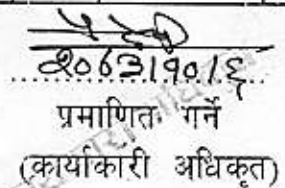 २०६३।१०।६
प्रमाणित गर्ने
(कार्याकारी अधिकृत)